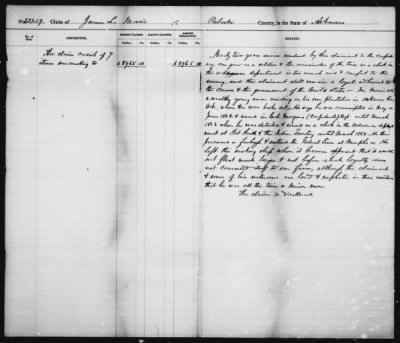 No. 22217. Claim of James L. Morris of Pulaski County, in the State of Arkansas
No. of Item. DESCRIPTION. AMOUNT CLAIMED. AMOUNT ALLOWED. AMOUNT DISALLOWED. REMARKS.
Dollars. Cts. Dollars. Cts. Dollars. Cts.
This claim consists of 7
items amounting to $8965.00 $8965.00
Nearly two years service rendered by this claimant to the
enemy, one year as a soldier & the remainder of the time as a clerk in
the ordnance department is too much aid & comfort to the
enemy, and this claimant still remain a loyal adherent to
the cause & the government of the United States. Mr. Morris was
a wealthy young man residing on his own plantation in
Ark. when the war broke out. He says he was conscripted in May or
June 1862 & served in Morgans (Confederate) Regt until March
1863 when he was detailed & served as a clerk in the ordnance
ment at Fort Smith & the Indian Territory until March 1864. He then
procured a furlough & entered the Federal lines at Memphis. He
left the sinking ship when it became apparent that it would
not float much longer & not before. Such loyalty does
not commend itself to our favor, although the claimant
& some of his witnesses are loud & emphatic in their
that he was all the time a Union man
The claim is disallowed